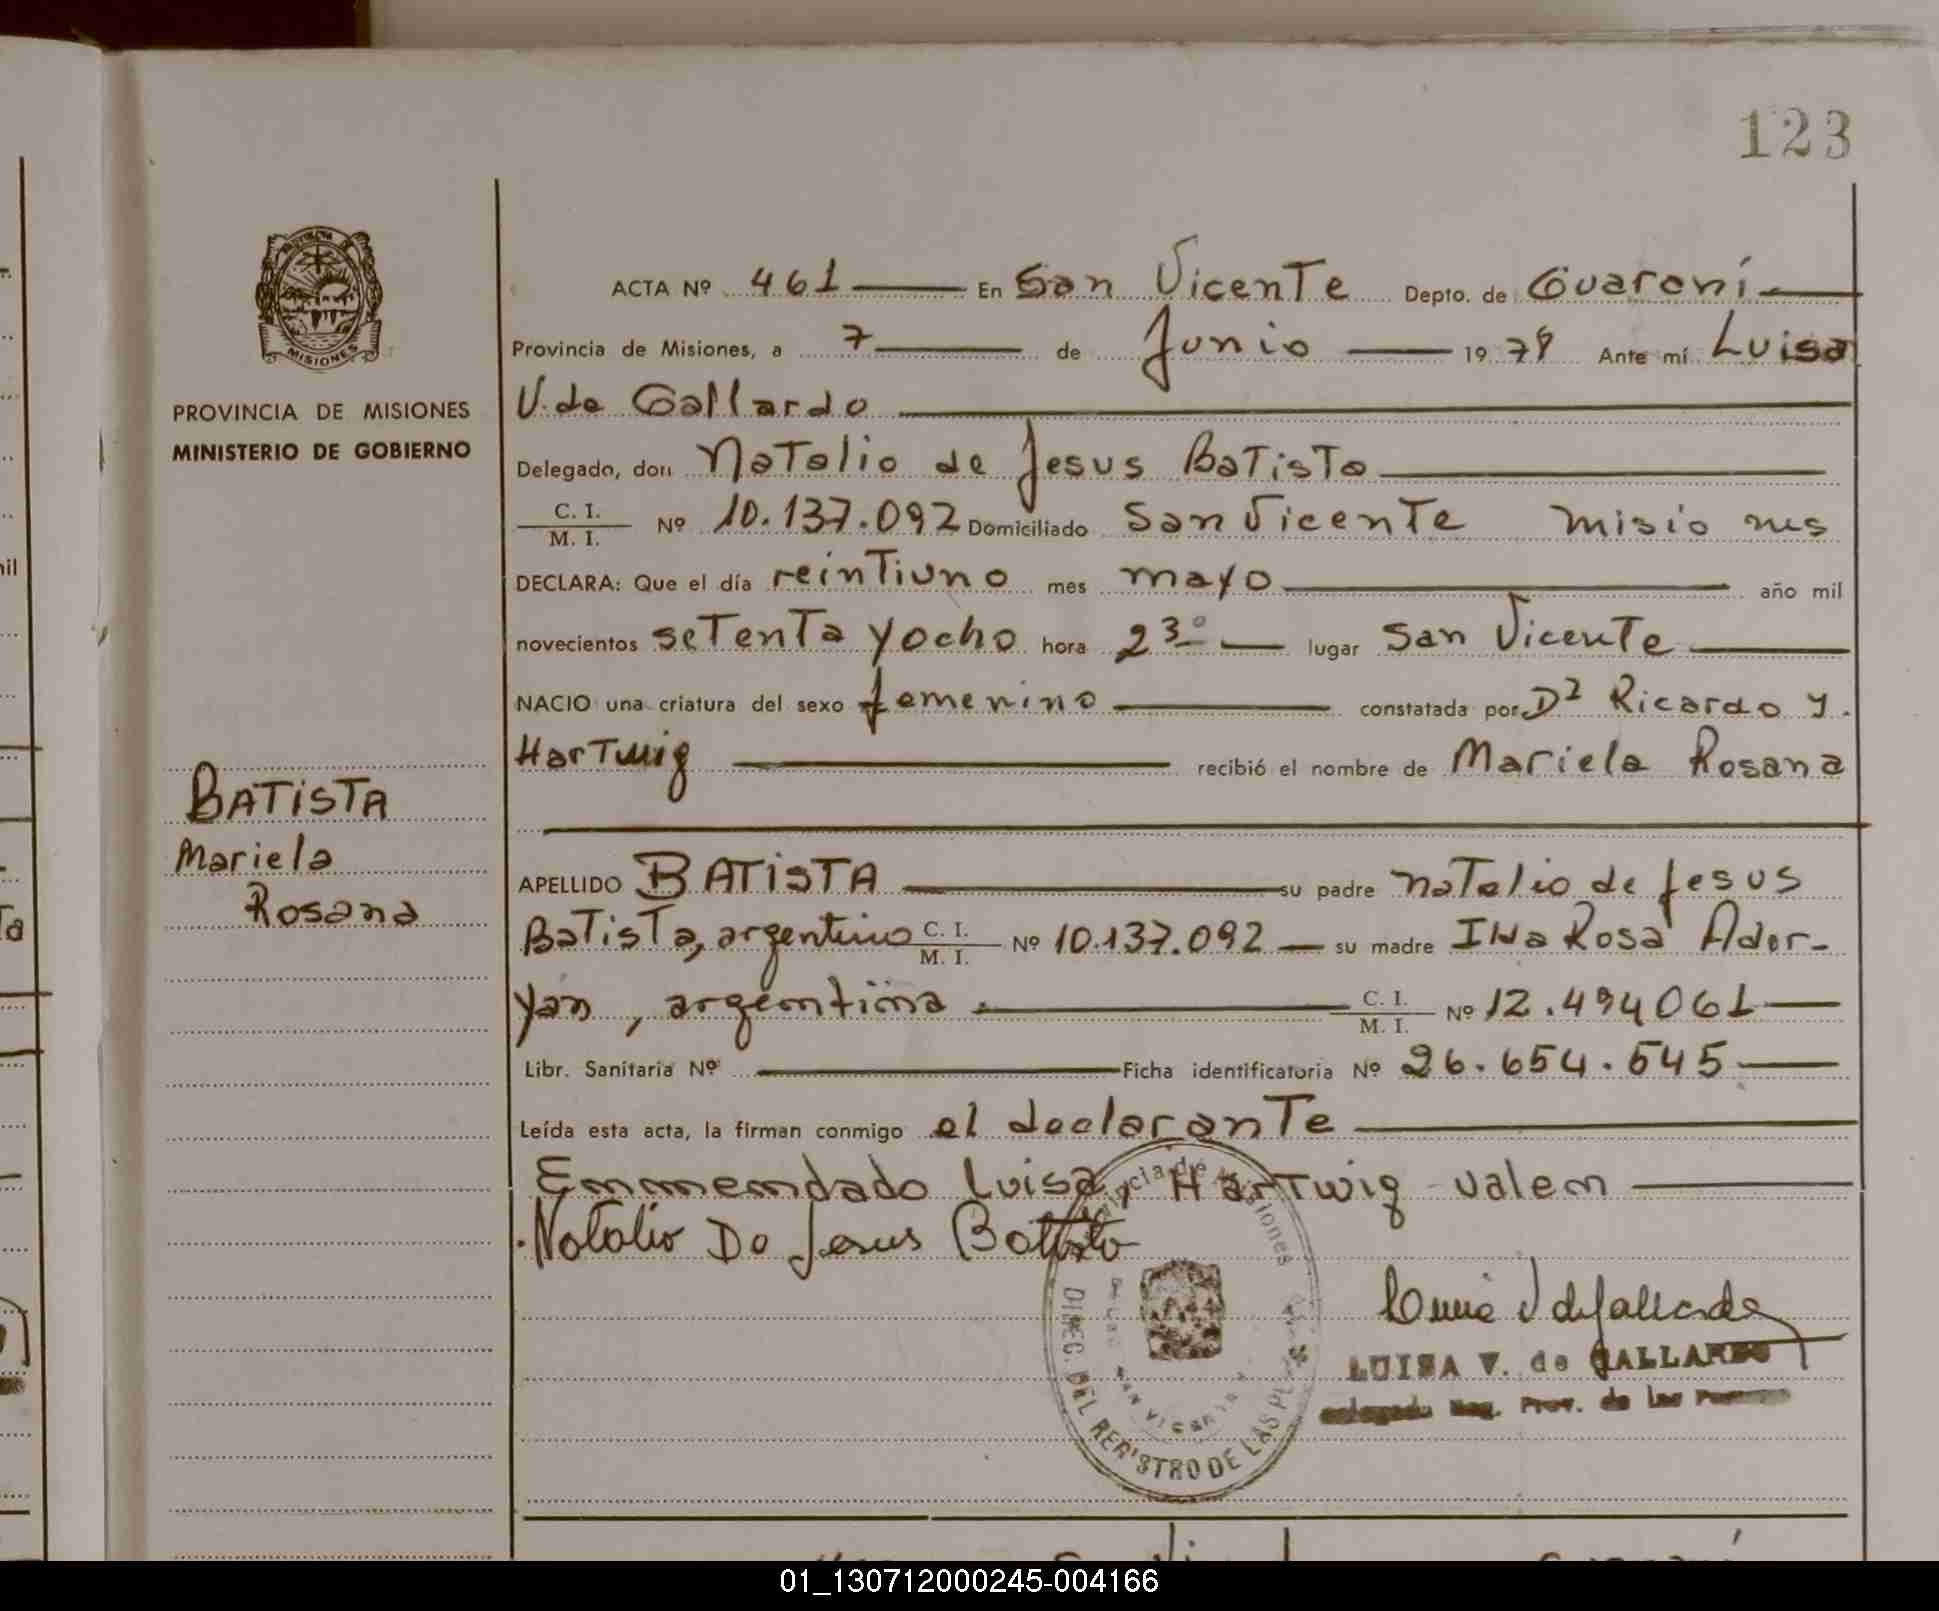 123
MISIONES
PROVINCIA DE MISIONES
MINISTERIO DE GOBIERNO
ACTA Nº 461 En San Vicente Depto. de Guaraní
Provincia de Misiones, a 7 de Junio 1978 Ante mí Luisa
V. de Gallardo
Delegado, don Natalio de Jesus Batista
C. I.
M. I. Nº 10.137.092 Domiciliado San Vicente Misiones
DECLARA: Que el día veintiuno mes mayo año mil
novecientos setenta y ocho hora 23º lugar San Vicente
NACIO una criatura del sexo femenino constatada por Dr Ricardo Y.
Hartwig recibió el nombre de Mariela Rosana
BATISTA
Mariela
Rosana
APELLIDO BATISTA su padre Natalio de Jesus
Batista, argentino C. I.
M. I. Nº 10.137.092 su madre Rosa Ader-
yan, argentina C. I.
M. I. Nº 12.494061
Libr. Sanitaria Nº Ficha identificatoria Nº 26.654.545
Leída esta acta, la firman conmigo el declarante
Enmmendado Luisa, Hartwig valen
Natalio De Jesus Battista
DIREC. DEL REGISTRO DE LAS
LUISA V. de GALLARDO
Prov. de las
01_130712000245-004166